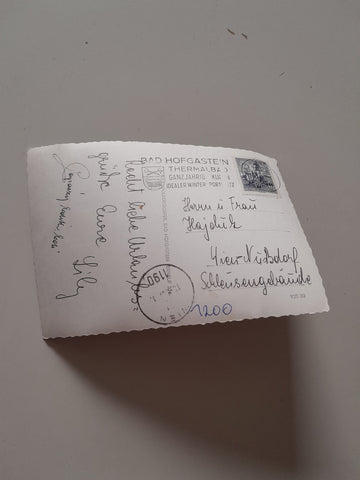 BAD HOFGASTEIN
THERMALBAD
GANZJÄHRIG KUR
IDEALER WINTER
Recht liebe Urlaubs=
grüße Eure Lily
Herrn u Frau
Hajduk
Wien-Nußdorf
Schleusengebäude
1200
1190
WIEN